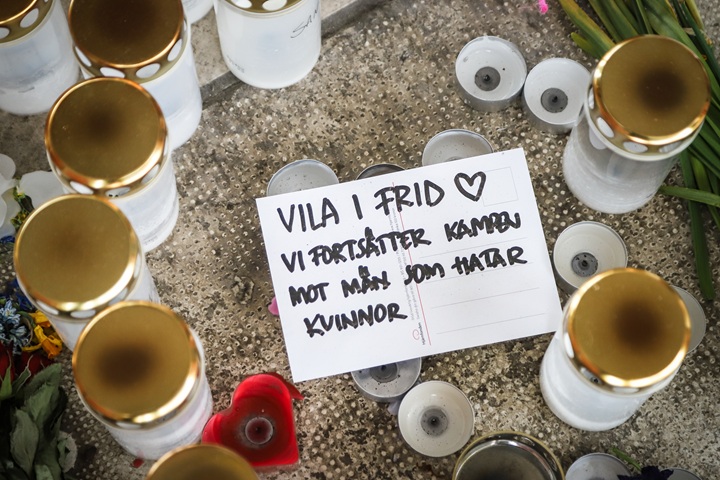 VILA I FRID ♡
VI FORTSÄTTER KAMPEN
MOT MÄN SOM HATAR
KVINNOR